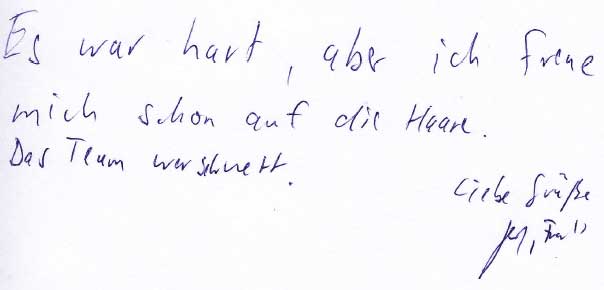 Es war hart, aber ich freue
mich schon auf die Haare.
Das Team war sehr nett.
Liebe Grüße